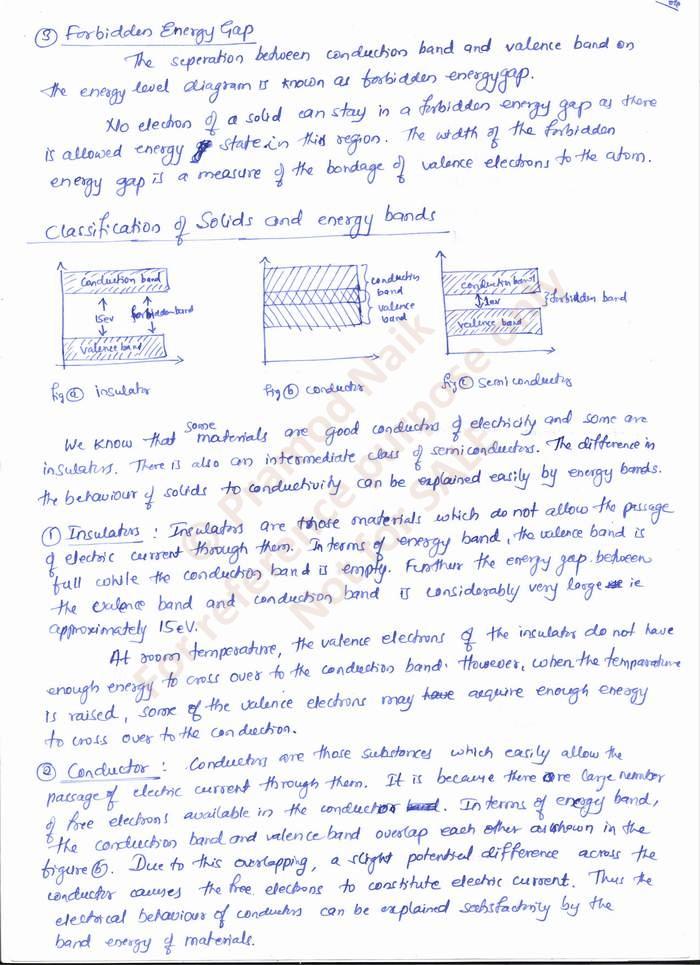 ③ Forbidden Energy Gap
The seperation between conduction band and valence band on
the energy level diagram is known as forbidden energy gap.
No electron of a solid can stay in a forbidden energy gap as there
is allowed energy state in this region. The width of the forbidden
energy gap is a measure of the bondage of valence electrons to the atom.
Classification of Solids and energy bands
conduction band
15ev
forbidden band
valence band
fig ⓐ insulator
conduction
band
valence
band
fig ⓑ conductor
conduction band
1ev
forbidden band
valence band
fig ⓒ semiconductor
We know that some materials are good conductors of electricity and some are
insulators. There is also an intermediate class of semiconductors. The difference in
the behaviour of solids to conductivity can be explained easily by energy bands.
① Insulators : Insulators are those materials which do not allow the passage
of electric current through them. In terms of energy band, the valence band is
full while the conduction band is empty. Further the energy gap between
the valence band and conduction band is considerably very large ie
approximately 15eV.
At room temperature, the valence electrons of the insulator do not have
enough energy to cross over to the conduction band. However, when the temparature
is raised, some of the valence electrons may acquire enough energy
to cross over to the conduction.
② Conductor : Conductors are those substances which easily allow the
passage of electric current through them. It is because there are large number
of free electrons available in the conductor. In terms of energy band,
the conduction band and valence band overlap each other as shown in the
figure ⓑ. Due to this overlapping, a slight potential difference across the
conductor causes the free electrons to constitute electric current. Thus the
electrical behaviour of conductors can be explained satisfactrily by the
band energy of materials.
Pramod Naik
For reference purpose only
Not for SALE